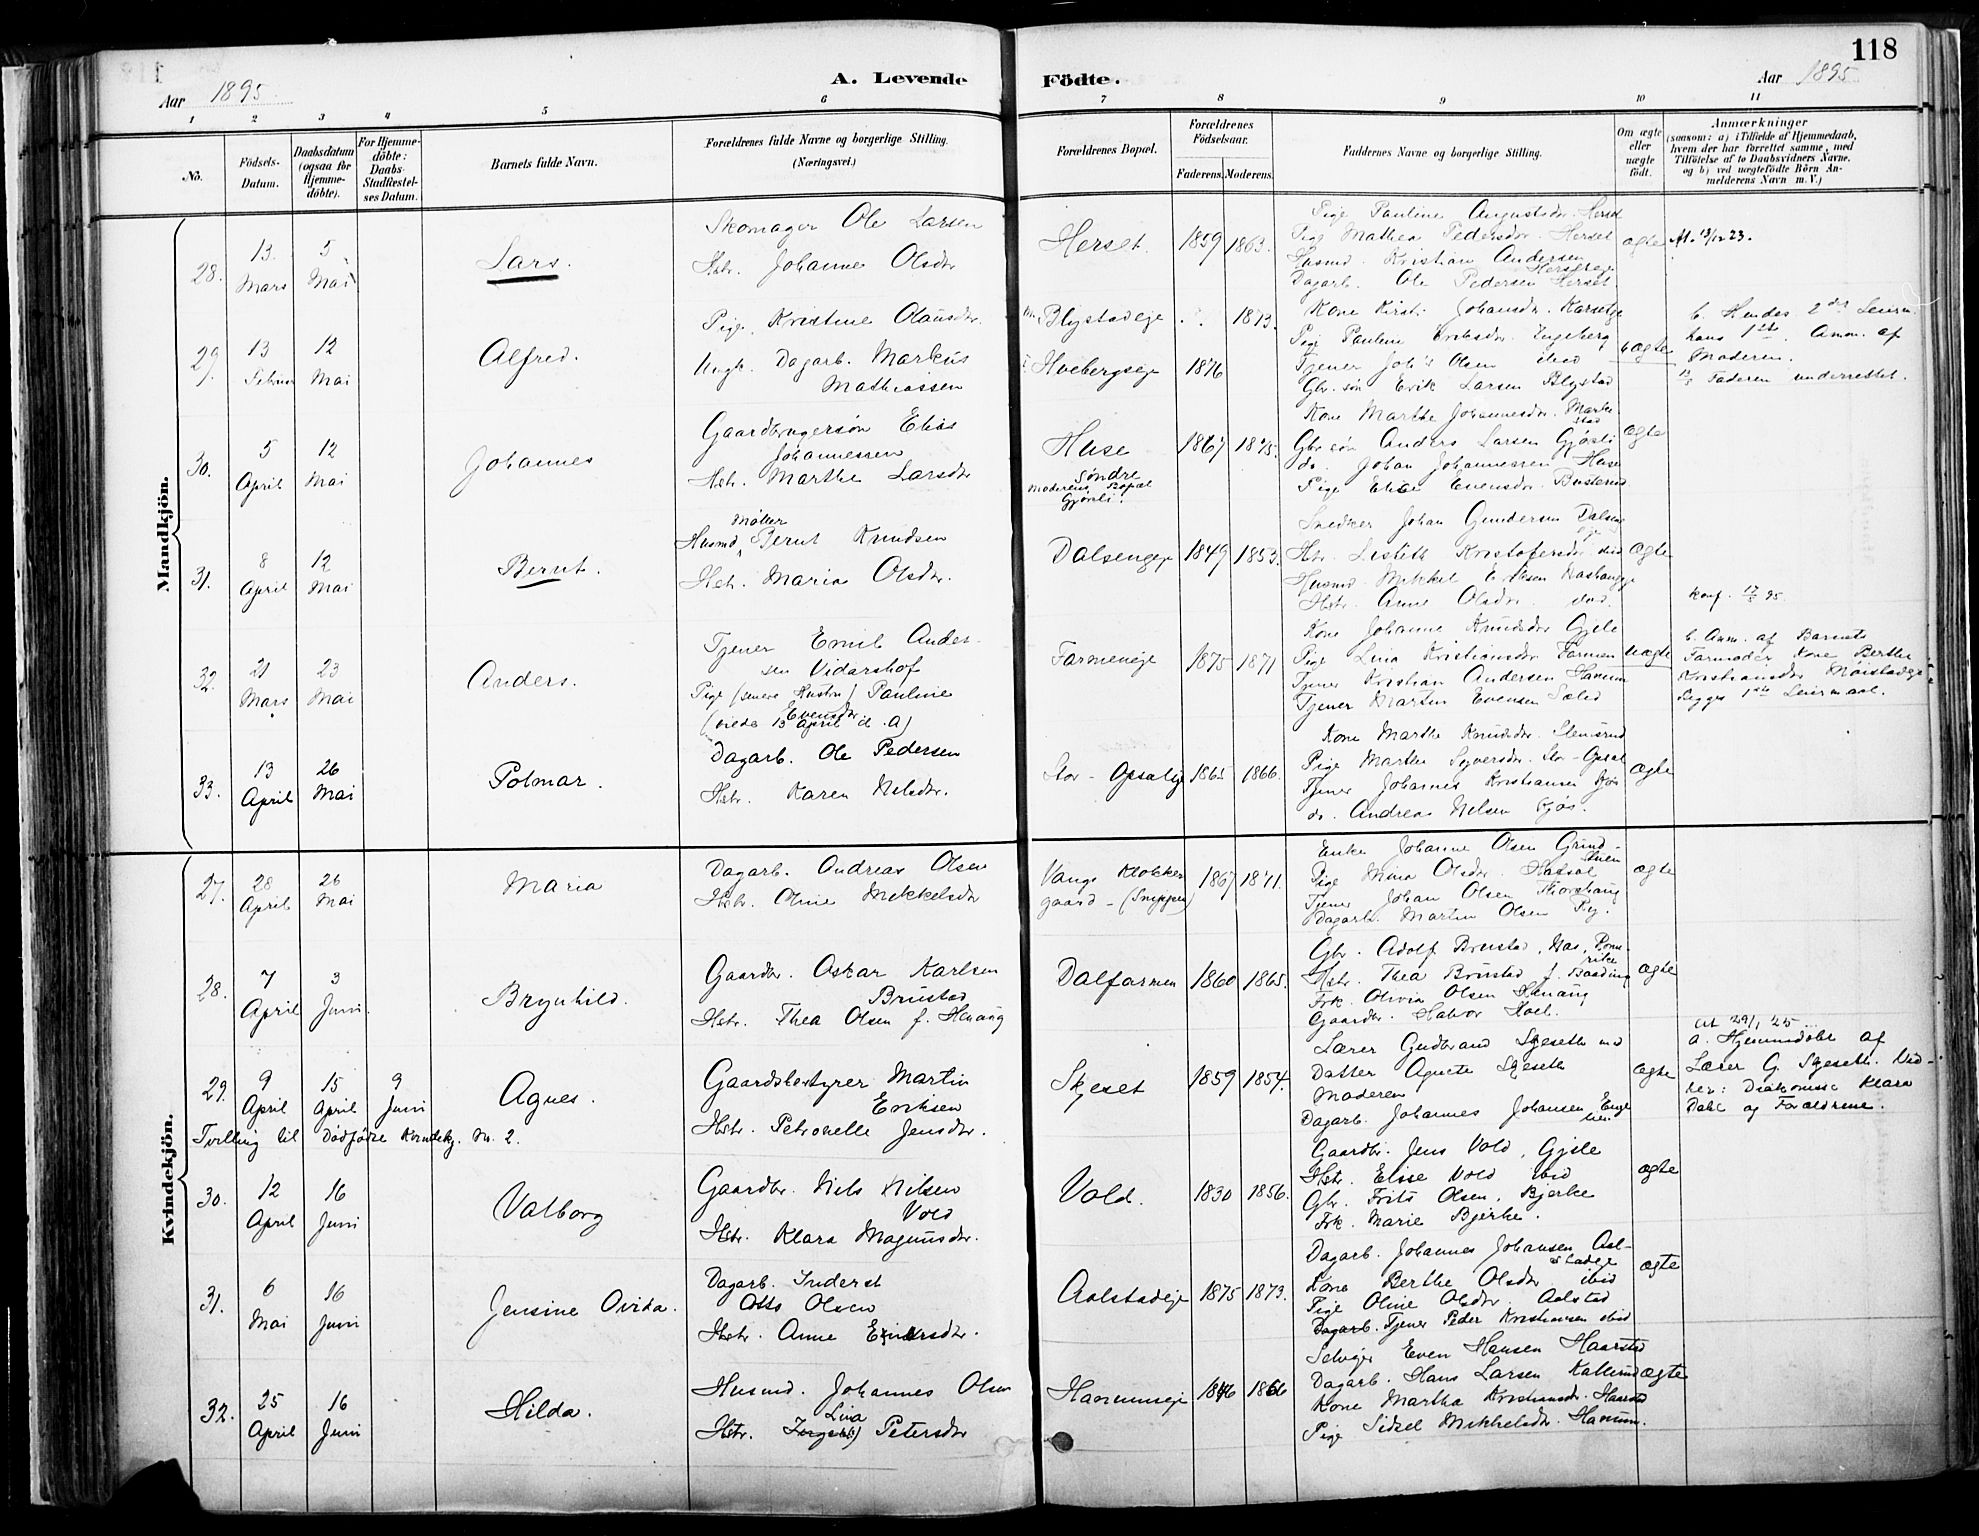 118
Aar 1895
A. Levende Födte.
Aar 1895
1 2 3 4 5 6 7 8 9 10 11
No.
Födsels-
Datum.
Daabsdatum
(ogsaa for
Hjemme-
döbte).
For Hjemme-
döbte:
Daabs-
Stadfæstel-
ses Datum.
Barnets fulde Navn.
Forældrenes fulde Navne og borgerlige Stilling.
(Næringsvei.)
Forældrenes Bopæl.
Forældrenes
Födselsaar.
Faderens. Moderens.
Faddernes Navne og borgerlige Stilling.
Om ægte
eller
uægte
födt.
Anmærkninger
(saasom: a) i Tilfælde af Hjemmedaab,
hvem der har forrettet samme, med
Tilföielse af to Daabsvidners Navne,
og b) ved uægtefödte Börn An-
melderens Navn m. V.)
Mandkjön.
28.
13.
Mars
5
Mai
Lars.
Skomager Ole Larsen
Hstr. Johanne Olsdtr
Herset.
1859 1863.
Pige Pauline Augustsdr. Herset
Pige Mathea Pedersdr. Herset
Husmd. Kristian Andersen
Hersetege
Dagarb. Ole Pedersen Herset.
ægte
At. 13/12 23.
29.
13
12
Mai
Alfred.
Pige Kristine Olausdr.
Ungk. Dagarb. Markus
Mathiassen
Blystadeje
Hvebergseje
1873.
1876
Kone Kirsti Johansdr.
Pige Pauline Engeberg
Tjener Joh's Olsen ibid
Gbr. søn Erik Larsen Blystad
uægte
b. Hendes 2det Leierm.
hans 1ste. Anm. af
Moderen.
Faderen underrettet.
30.
5
April
12
Mai
Johannes
Gaardbrugersøn Elias
Johannessen
Hstr. Marthe Larsdtr
Huse
Søndre
Moderens Bopæl
Gjørsli.
1867 1875.
Kone Marthe Johannesdr. Marke
stad
Gbr søn Anders Larsen Gjøsli
do. Johan Johannessen Huse
Pige Elise Evensdr.
ægte
31.
8
April
12
Mai
Bernt.
Møller
Husmd. Bernt Knudsen
Hstr. Maria Olsdtr.
Dalsengeje
1849 1853.
Snedker Johan Gundersen Dalsen
eje
Hstr. Lisbeth Kristofersdr ibid
Husmd. Mikkel
Hstr. Anne Olsdtr. ibid.
ægte
Konf. 95.
32.
21
Mars
23
Mai
Anders.
Tjener Emil Ander-
sen Vidarshof
Pige (senere Hustru) Pauline
Evensdr
(viede 15 April d. A)
Farmeneje
1875 1871
Kone Johanne Knudsdr Gjile
Pige Lina Kristiansdr Farmen
Tjener Kristian Andersen Hanum
Tjener Martin Evensen
uægte
b. Anm. af Barnets
Farmoder Kone Berthe
Kristiansdr Nøistadeje
Begges 1ste Leiermaal.
33.
13
April
26
Mai
Polmar.
Dagarb. Ole Pedersen
Hstr. Karen Nilsdtr.
Stor-Opsaleje
1865 1866.
Kone Marthe Knudsdr. Stensrud
Pige Marthe Syversdr. Stor-Opsal
Tjener Johannes Kristiansen Kjøs
do. Andreas Nilsen Kjøs.
ægte
Kvindekjön.
27.
28
April
26
Mai
Maria
Dagarb. Andreas Olsen
Hstr. Oline Mikkelsdtr
Vangs Klokker
gaard - (Snippen)
1867 1871.
Enke Johanne Olsen Grind-
stuen
Pige Mina Olsdr.
Tjener Johan Olsen
Dagarb. Martin Olsen Ry.
ægte
28.
7
April
3
Juni.
Brynhild.
Gaardbr. Oskar Karlsen
Brustad
Hstr. Thea Olsen f. Henaug
Dalfarmen
1860 1865.
Gbr. Adolf Brustad, Næs, Rome-
rike
Hstr. Thea Brustad f. Baading
Frk. Olivia Olsen Henaug
Gaardbr. Halvor Hoel.
ægte
29.
9
April
15
April
9
Juni
Agnes.
Gaardsbestyrer Martin
Eriksen
Hstr. Petronelle Jensdtr.
Tvilling til Dødfødte Kvindekj. No. 2.
Skjeset
1859 1854.
Lærer Gudbrand Skjeseth med
Datter Agnete Skjeseth
Moderen
Dagarb. Johannes Johansen Enge
lien
ægte
At 29/1 25
a. Hjemmedøbt af
Lærer G. Skjeseth. Vid-
ner: Diakonisse Klara
Dahl og Forældrene.
30.
12
April
16
Juni
Valborg
Gaardbr. Nils Nilsen
Vold
Hstr. Klara Magnusdtr.
Vold.
1830 1856.
Gaardbr. Jens Vold, Gjile
Hstr. Elise Vold ibid
Gbr. Frits Olsen, Bjerke
Frk. Marie Bjerke.
ægte
31.
6
Mai
16
Juni
Jensine Ovida.
Dagarb. Inderst
Otto Olsen
Hstr. Anne Einarsdtr.
Aalstadeje
1875 1873.
Dagarb. Johannes Johansen Aal-
stadeje
Kone Berthe Olsdtr. ibid
Pige Oline Olsdtr. Aalstad
Dagarb. Tjener Peder Kristiansen ibid
ægte
32.
25
April
16
Juni
Hilda.
Husmd. Johannes Olsen
Lina
Hstr. Petersdtr
Hanumseje
1846 1866
Selveier Even Hansen Haarstad
Dagarb. Hans Larsen Kallerud
Kone Martha Kristiansdr. Haarstad
Pige Sidsel Mikkelsdtr. Hanum.
ægte